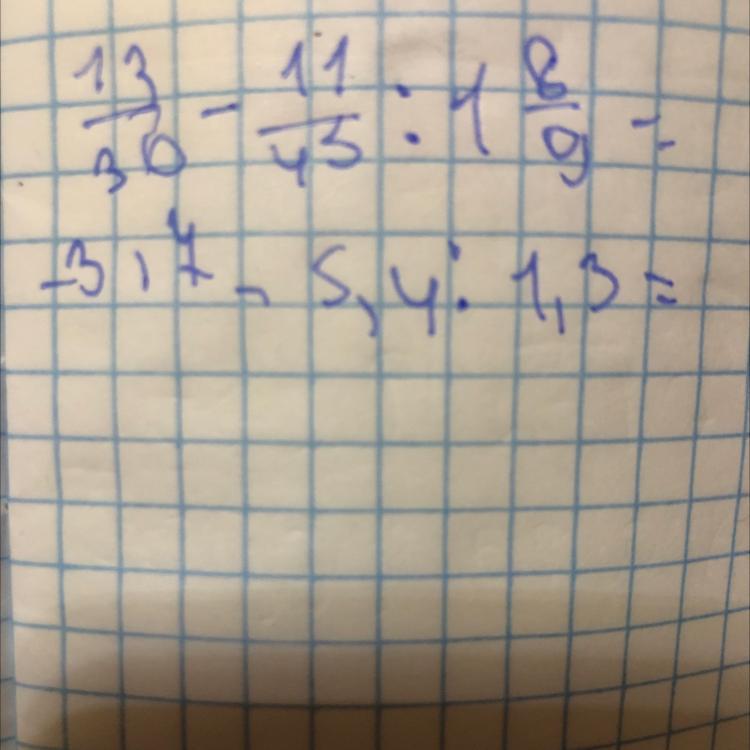 13/30 - 11/45 : 1 8/9 =
-3,7 - 5,4 : 1,3 =